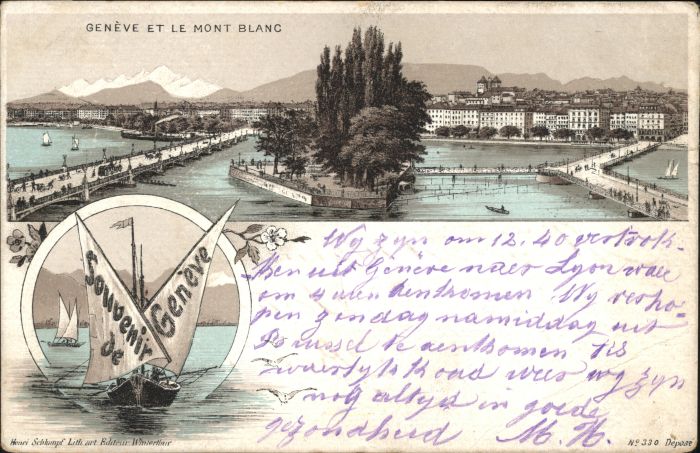 GENÈVE ET LE MONT BLANC
Souvenir
de
Genève
Wy zyn om 12.40 vertrok-
ken uit Genève naer Lyon waer
om 4 uren aenkomen Wy verho-
pen zondag namiddag uit
Brussel te aenkomen tis
waerlyk koud weer wy zyn
nog altyd in goede
gezondheid M. H.
Henri Schlumpf Lith. art. Editeur Winterthur
No 330 Déposé